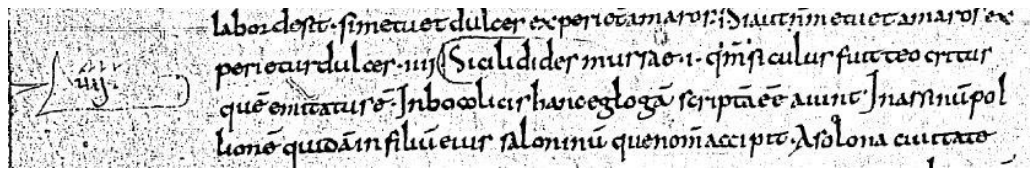 labor desit · si metuet dulces experiet amaros · Si aut n̄ metuet amaros ex
perietur dulces · iiij Sicilidides mursae · i · qm̄ siculus fuit teocritus
iiij
quē emitatur ē · In bocolicis hanc eglogā scriptā eē aiunt · In assinnū pol
lionē quidā in filiū eius saloninū que nom̄ accipit · A solona ciuitate